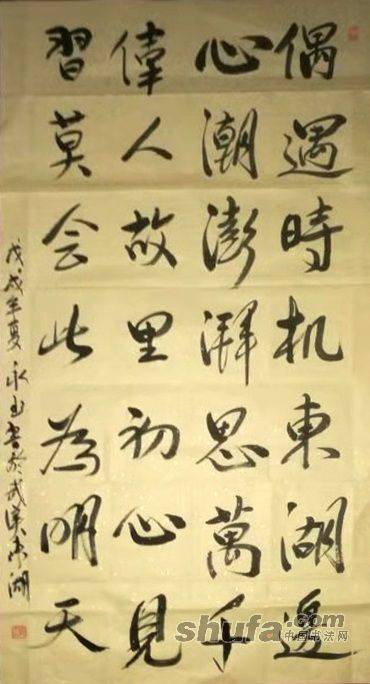 偶遇時机東湖邊
心潮澎湃思萬千
偉人故里初心見
習莫会此為明天
戊戌年夏永玉書於武漢東湖
shufa.com
中国书法网